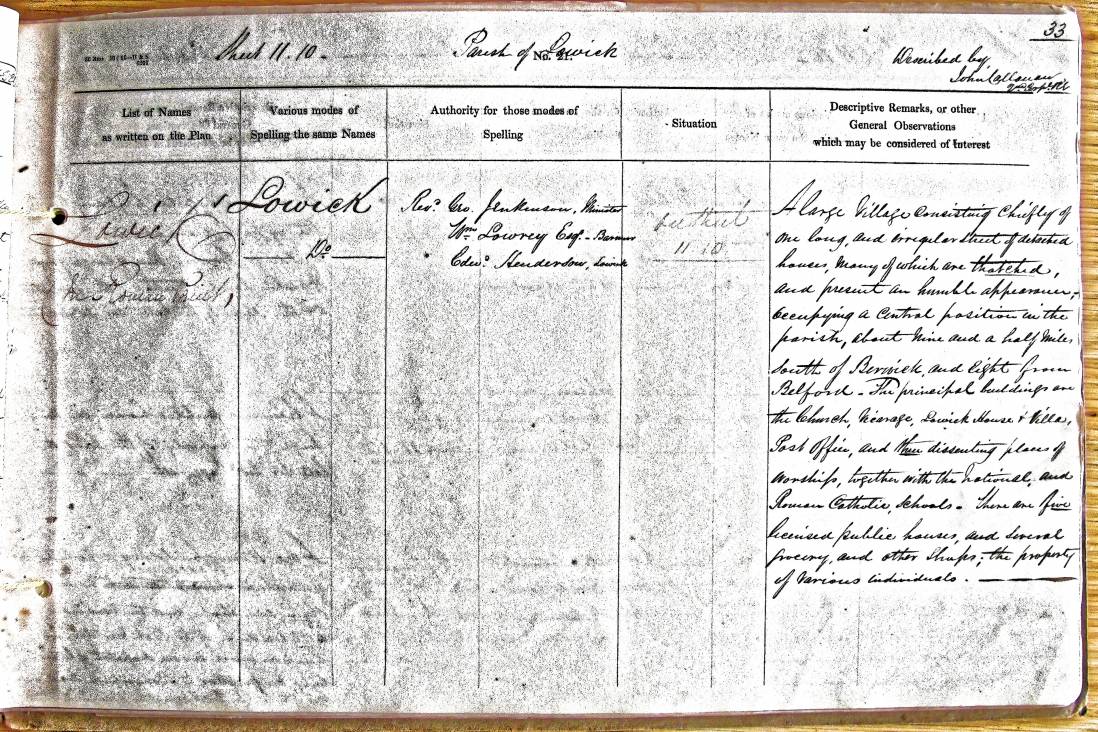 33
Sheet 11.10.
Parish of Lowick
No. 21.
Described by
John Callanan
List of Names
as written on the Plan
Various modes of
Spelling the same Names
Authority for those modes of
Spelling
Situation
Descriptive Remarks, or other
General Observations
which may be considered of Interest
Lowick
Do
Revd. Geo. Jenkinson, Minister
Wm. Lowrey Esqr. - Barmoor
Edwd. Henderson, Lowick
11 10
A large Village consisting chiefly of
one long, and irregular street of detached
houses, many of which are thatched,
and present an humble appearance;
occupying a central position in the
parish, about Nine and a half Miles
South of Berwick, and Eight from
Belford - The principal buildings are
the Church, Vicarage, Lowick House & Villa,
Post Office, and three dissenting places of
worship, together with the National, and
Roman Catholic, Schools - There are five
licensed public houses, and Several
Grocery, and other Shops; the property
of Various individuals.